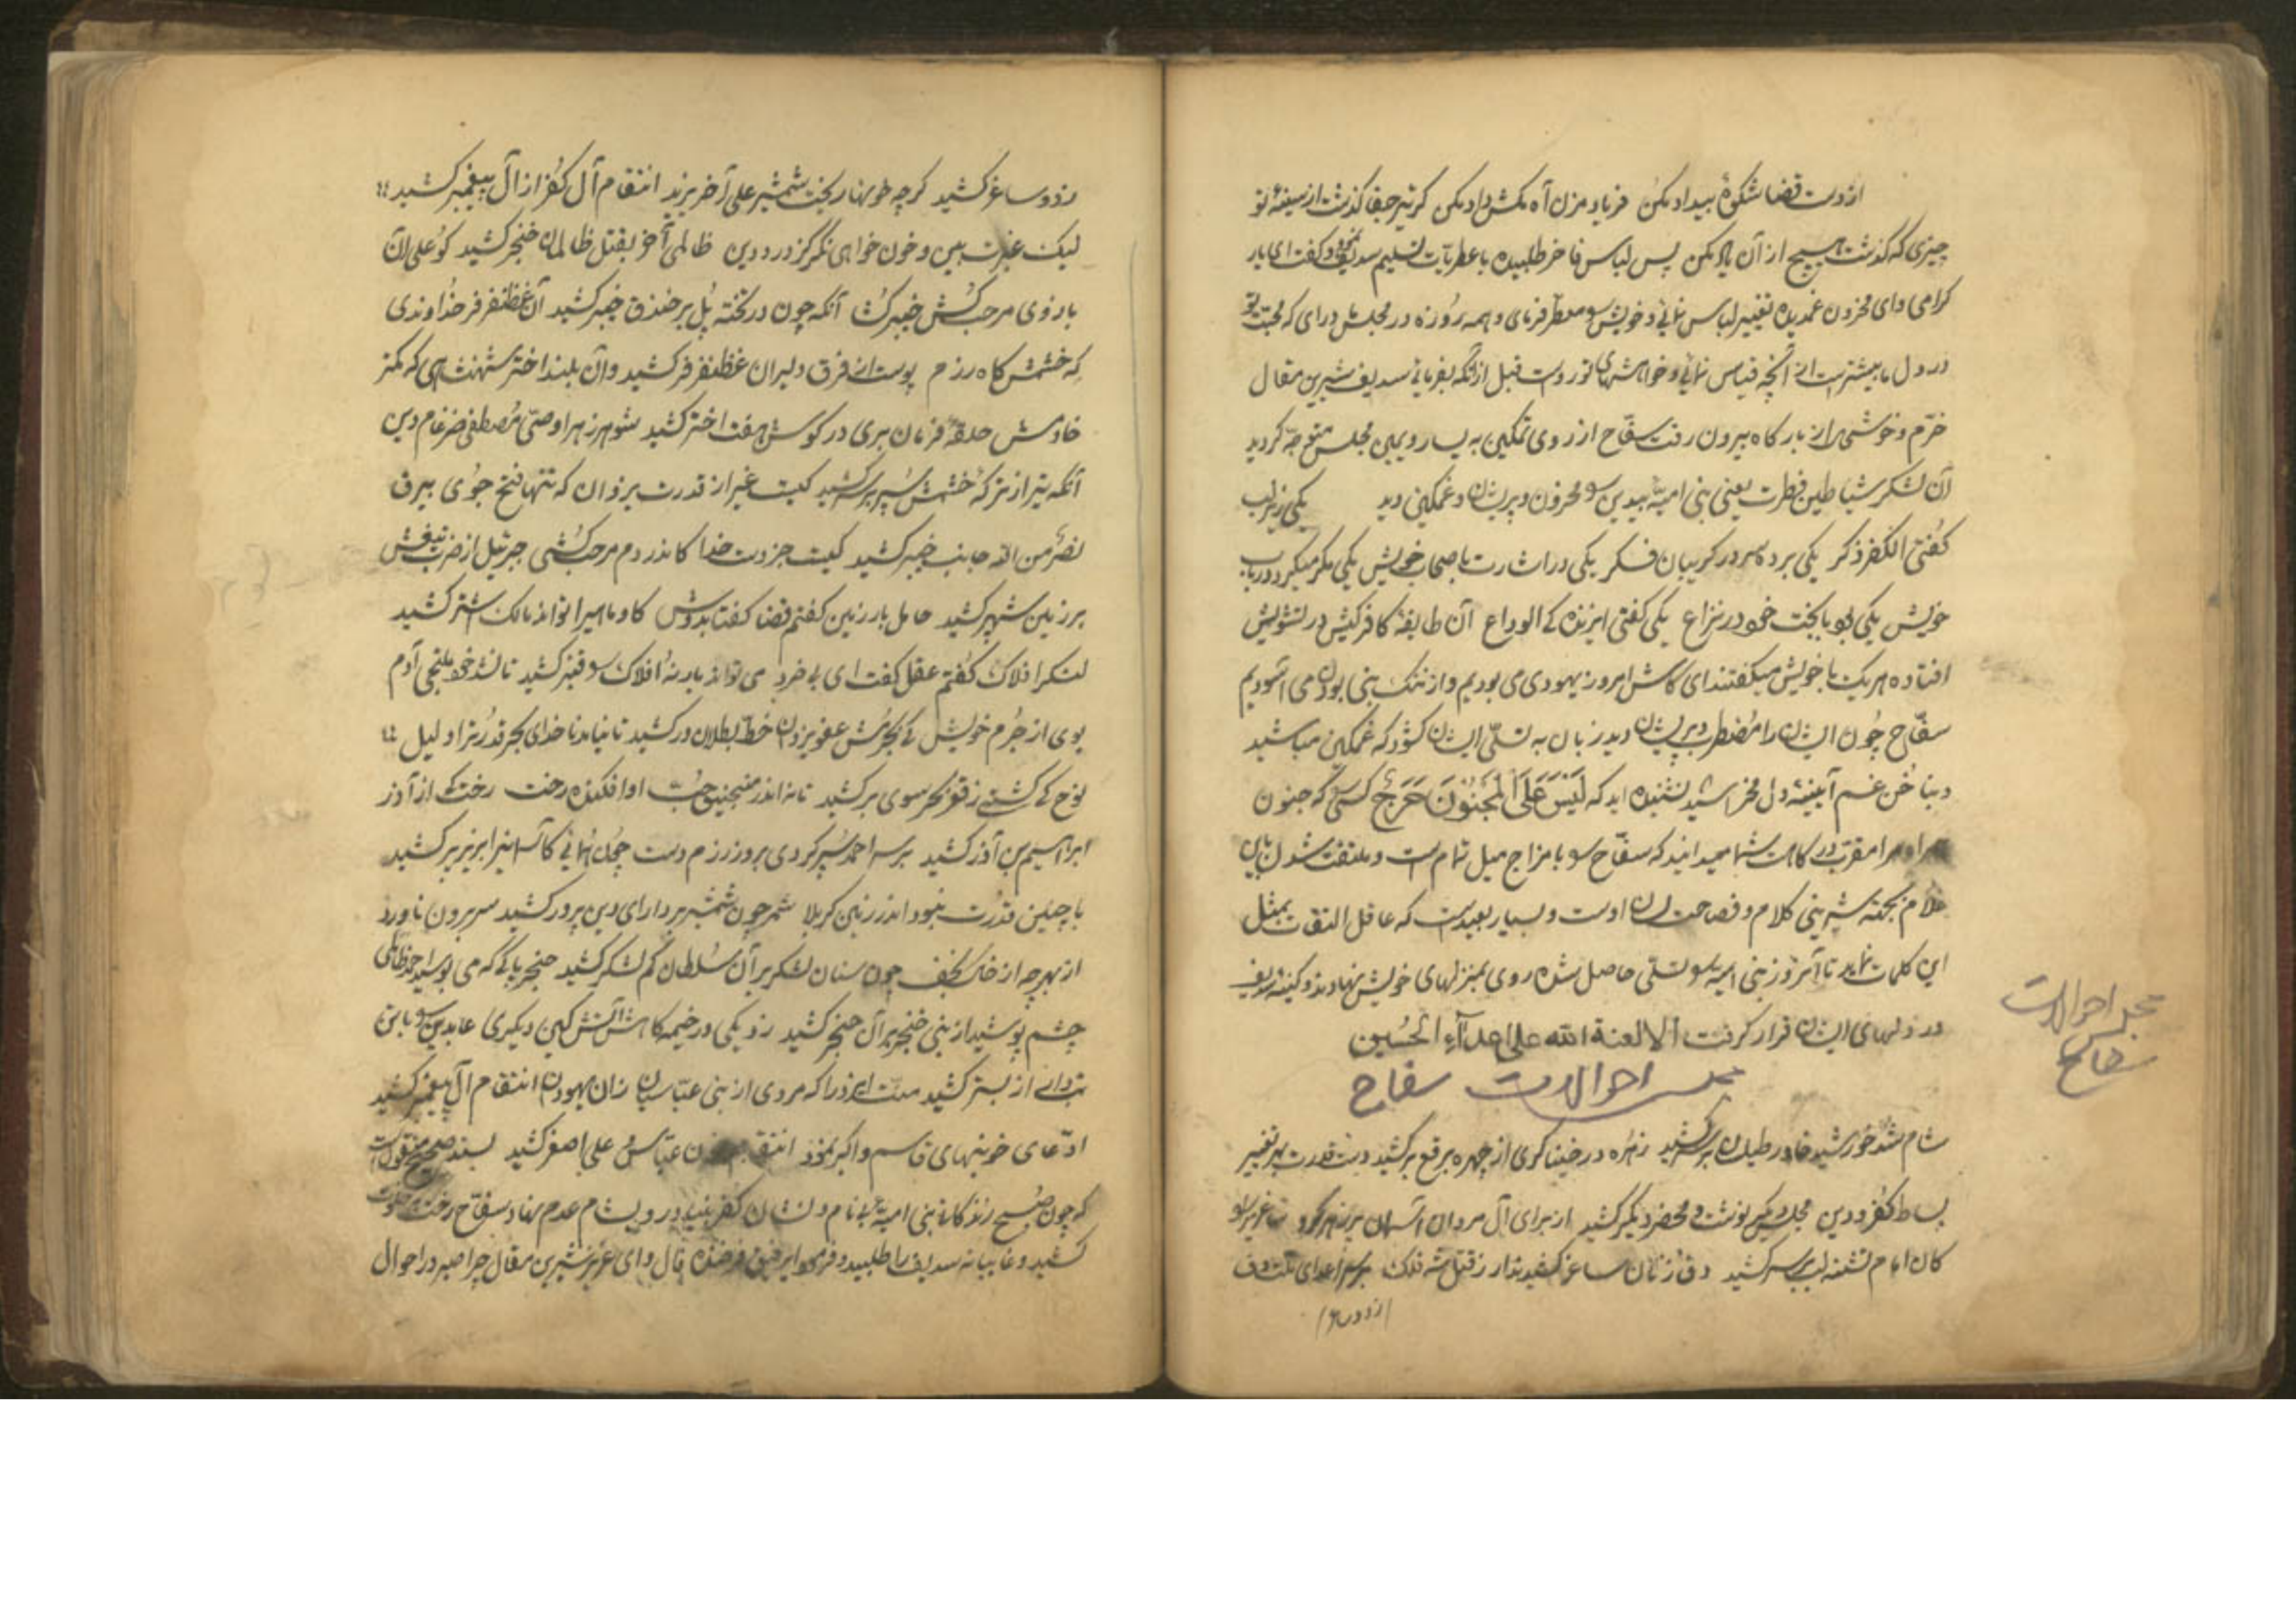 از دست قضا شکوهٔ بیداد مکن فریاد مزن آه مکش داد مکن گر تیر جفا گذشت از سینهٔ تو
چیزی که گذشت هیچ از آن یاد مکن پس لباس فاخر طلبیده با عطریات تسلیم سدیف نمود و گفت ای یار
گرامی وای محزون غمدیده تغییر لباس نمائی و خویش را معطر فرمای و همه روزه در مجلس درای که محبت تو
در دل ما بیشتر است از آنچه قیاس نمائی و خواهشهای تو رواست قبل از آنکه بفرمائی سدیف شیرین مقال
خرّم و خوشدل از بارگاه بیرون رفت سفّاح از روی تمکین به یسار و یمین مجلس متوجه گردید
آن لشکر شیاطین فطرت یعنی بنی امیّه بیدین را محزون و پریشان و غمگین دید یکی زیر لب
گفتی الکفر ذکر یکی برده سر در گریبان فکر یکی در اشارت با صحاب خویش یکی مکر میکرد در باب
خویش یکی بود با بخت خود در نزاع یکی گفتی از زندگی الوداع آن طایفهٔ کافر کیش در تشویش
افتاده هر یک با خویش میگفتند ای کاش امروز یهودی می بودیم و از ننگ بنی بودن می آسودیم
سفّاح چون ایشان را مضطرب و پریشان دید زبان به تسلّی ایشان گشود که غمگین مباشید
و بناخن غم آیینهٔ دل مخراشید نشنیده اید که لَیْسَ عَلَی الْمَجْنُونَ حَرَجٌ کسی که جنون
سر او مقرب درگاهست شما میدانید که سفّاح را با مزاح میل تمام است و ملتفت شدن باین
غلام بجهة شیرینی کلام و فصاحت لسان اوست و بسیار بعید است که عاقل التفات بمثل
این کلمات نماید تا آنروز بنی امیه را تسلّی حاصل شده روی بمنزلهای خویش نهادند و کینهٔ سدیف
در دلهای ایشان قرار گرفت الا لعنة الله علی اعداء الحسین
مجلس احوالات سفاح
مجلس احوالات
سفاح
شام شد خورشید خاور طیلسان بر سر کشید زهره در خیناگری از چهره برقع بر کشید دست قدرت بهر تغییر
بساط کفر و دین مجلس دیگر نوشت و محضر دیگر کشید از برای آل مروان آسمان پر زهر کرد ساغری را
کان امام تشنه لب بر سر کشید دف زنان ساغر کشیدند ار ز قتل شه فلک بر سر اعدای
از دو سا
زد و ساغر کشید گرچه خونها ریخت شمشیر علی آخر یزید انتقام آل کفر از آل پیغمبر کشید
لیک عبرت بین و خون خواهی نگر کز درد دین ظالمی آخر بقتل ظالمان خنجر کشید کو علی آن
بازوی مرحب کش خیبر کشا آنکه چون در تخته پل بر خندق خیبر کشید آن غظنفر فر خداوندی
که خشمش گاه رزم پوست از فرق دلیران غظنفر فر کشید و آن بلند اختر شهنشاهی که کمتر
خادمش حلقهٔ فرمان بری در گوش هفت اختر کشید شوهر زهرا وصیّ مصطفی ضرغام دین
آنکه تیر از ترکش خشمش سپر بر سر کشید کیست غیر از قدرت یزدان که تنها فتح جوی بیرق
نصرٌ من الله جانب خیبر کشید کیست جز دست خدا کاندر دم مرحب کشی جبرئیل از ضرب تیغش
بر زمین شهپر کشید حامل بار زمین گفتم قضا گفتا بدوش گاو ماهی را تواند مالک اشتر کشید
لنگر افلاک گفتم عقل گفت ای بی خرد می تواند بار نه افلاک را قنبر کشید تا نشد خود ملتجی آدم
بوی از جرم خویش کی بجرمش عفو یزدان خط بطلان در کشید تا نیامد ناخدای بحر قدرت را دلیل
نوح کی کشتی ز قعر بحر سوی بر کشید تا نه اندر منجنیق حبّ او افکنده رخت رخت کی از آذر
ابراهیم بن آذر کشید بر سر احمد سپر کردی بروز رزم دست چون توانی کآسمانرا بزیر پر کشید
با چنین قدرت نبود اندر زمین کربلا شمر چون شمشیر بر دارای دین پرور کشید سر برون ناورد
از بهر چه از خاک نجف چون سنان لشکر بر آن سلطان کم لشکر کشید خنجر یا که می بوسید احمد ظالمی
چشم پوشید از بنی خنجر بر آن حنجر کشید زد یکی در خیمه گاهش آتش کین دیگری عابدین را با تن
تبدار از بستر کشید منت ایزد را که مردی از بنی عبّاسیان زان یهودان انتقام آل پیغمبر کشید
ادّعای خونهای قاسم و اکبر نمود انتقام خون عبّاس و علی اصغر کشید بسند صحیح منقول است
که چون صبح زندگانی بنی امیّه بی نام و نشان کفر بنیاد رو بشام عدم نهاد سفّاح رخت خلوت
کشید و غایبانه سدیف را طلبید و فرمود ای رفیق فرخنده فال وای عزیز شیرین مقال چرا صبر در احوال